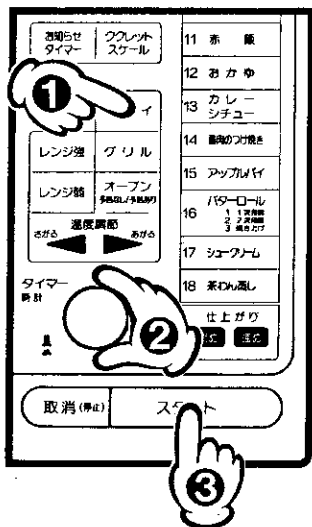 お知らせ
タイマー
ククレット
スケール
❶
ィ
レンジ強
グリル
レンジ弱
オーブン
予熱なし/予熱あり
温度調節
さがる
あがる
タイマー
時計
❷
取消(停止)
スタート
❸
11 赤飯
12 おかゆ
13 カレー
シチュー
14 鶏肉のつけ焼き
15 アップルパイ
16 バターロール
17 シュークリーム
18 茶わん蒸し
仕上がり